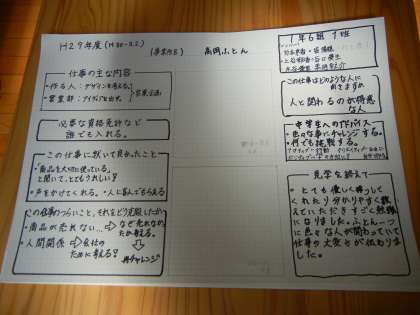 H29年度(H30.2.2)
(事業所名) 高岡ふとん
仕事の主な内容
・作る人:デザインを考える。
・営業部:アイディアを出す。
営業企画
必要な資格免許など
誰でも入れる。
この仕事に就いて良かったこと
・「商品を大切に使っている」
と聞いて、とてもうれしい!
・声をかけてくれる。・人に喜んでもらえる
この仕事のつらいこと、それをどう克服したか
・商品が売れない… ⇒ なぜ売れないのか考える。
・人間関係 ⇒ 会社のために考える?
再チャレンジ
1年6組 1班
この仕事はどのような人に向きますか
人と関わるのが得意な人
中学生へのアドバイス
・色々な事にチャレンジする。
・何でも挑戦する。
見学を終えて
・とても優しく接してくれたり分かりやすく教えていただきすごく勉強になりました。ふとん一つに色々な人が関わっていて仕事の大変さが伝わりました。